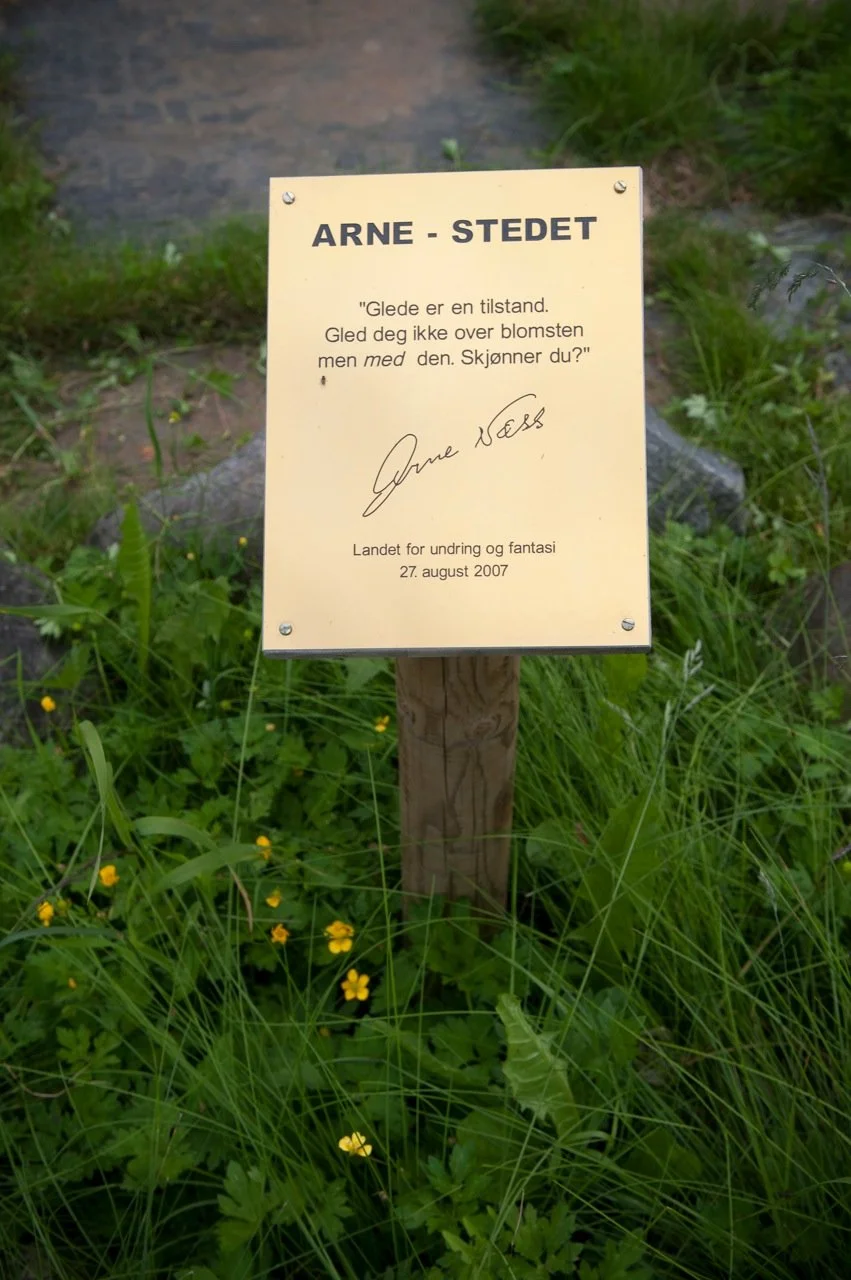 ARNE - STEDET
"Glede er en tilstand.
Gled deg ikke over blomsten
men med den. Skjønner du?"
Arne Næss
Landet for undring og fantasi
27. august 2007